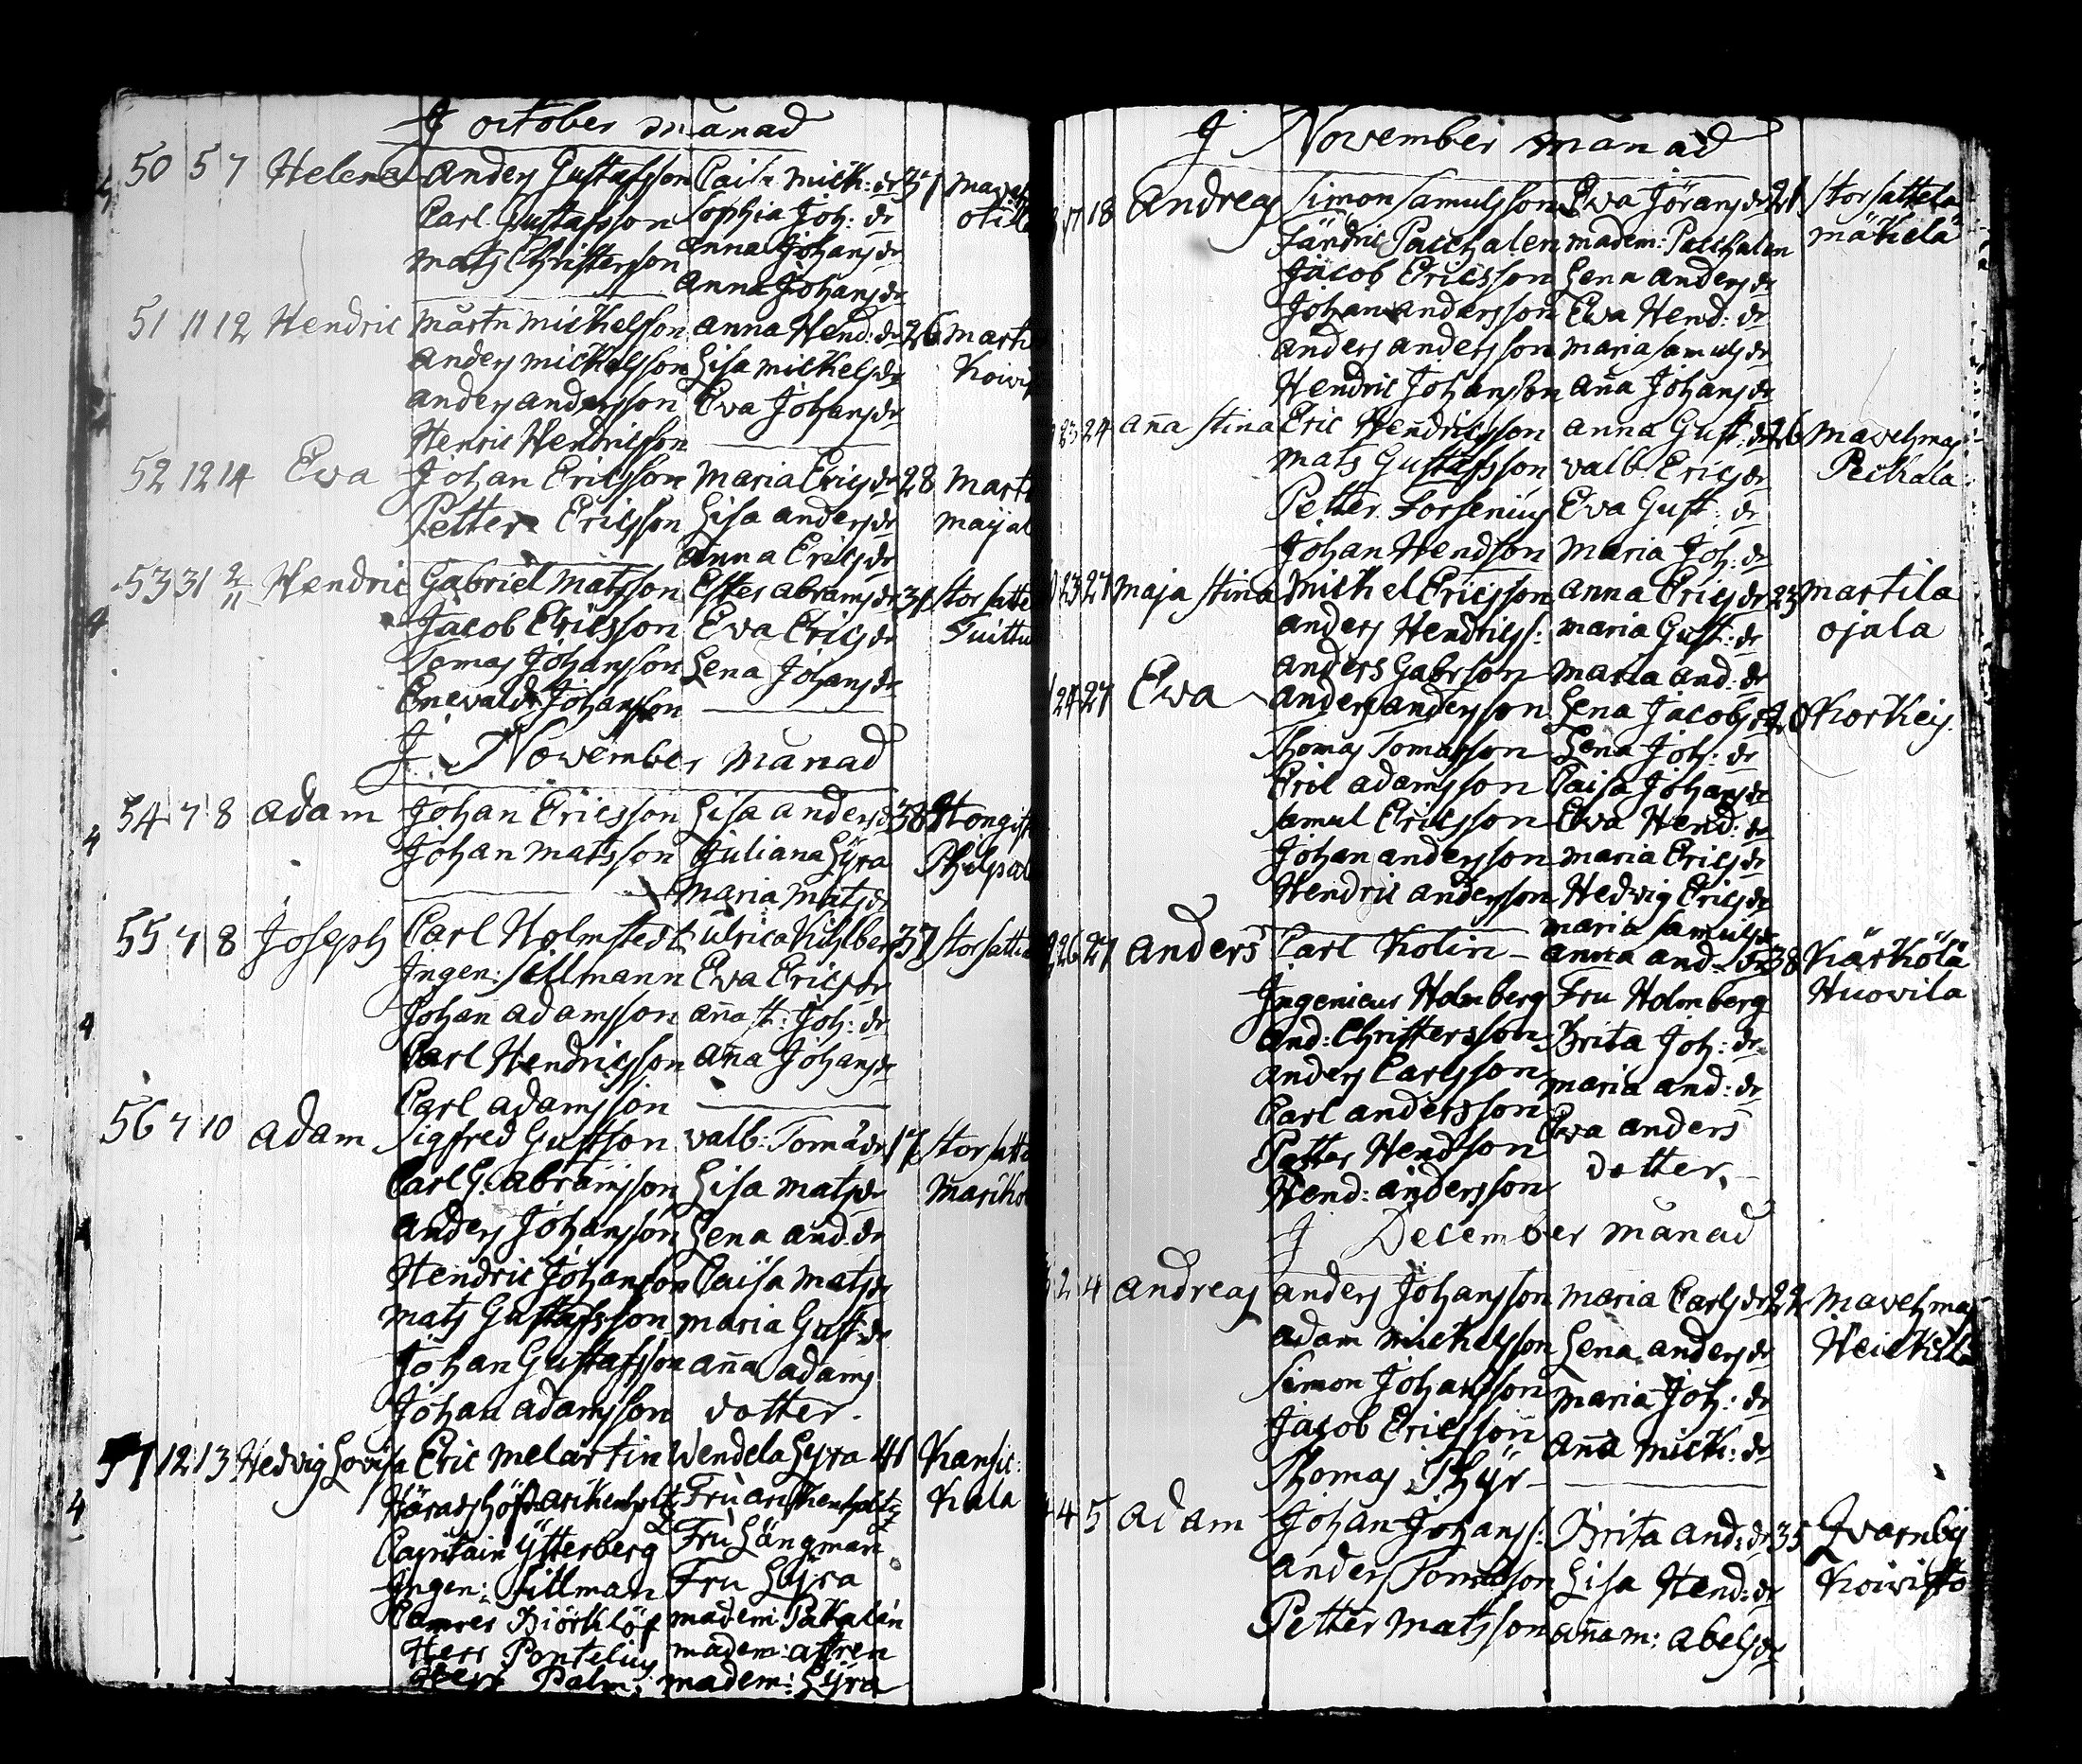 J october månad
50 5 7 Helena Anders Gustafsson Caisa Mick: dr 37
Carl Gustafsson Sophia Joh: dr
Mats Christersson Anna Johans dr
Anna Johans dr
51 11 12 Hendric Mårtn Michelsson Anna Hend: dr 26
Anders Michelsson Lisa Michels dr
Anders Andersson Eva Johans dr
Henric Hendricsson
52 12 14 Eva Johan Ericsson Maria Erics dr 28
Petter Ericsson Lisa Anders dr
Anna Erics dr
53 31 2/11 Hendric Gabriel Matsson Ester Abrams dr 31
Jacob Ericsson Eva Erics dr
Tomas Johansson Lena Johans dr
Enevald Johansson
J November månad
54 7 8 Adam Johan Ericsson Lisa Anders d 38
Johan Matsson Juliana Lÿra
Maria Mats dr
55 7 8 Joseph Carl Holmstedt Ulrica Kihlberg 37
Ingen: Sillmann Eva Erics dr
Johan Adamsson Aña St: Joh: dr
Carl Hendricsson Aña Johans dr
Carl Adamsson
56 7 10 Adam Sigfred Gustson Valb: Tomä dr 17
Carl G. Abramsson Lisa Mats dr
Anders Johansson Lena And: dr
Hendric Johansson Caisa Mats dr
Mats Gustafsson Maria Gust: dr
Johan Gustafsson Aña Adams
Johan Adamsson dotter.
57 12 13 Hedvig Lovisa Eric Melartin Wendela Lyra 41 Kansic:
Häradshöfd Arikenholtz Fru Arikenholtz Kala
Capitain Ytterberg Fru Långman
Ingen: Sillman Fru Lyra
Camrer Biörklöf Madem: Pakalèn
Herr Pontelius Madem: Affren
Herr Palm. Madem: Lÿra
J November månad
17 18 Andreas Simon Samulsson Eva Jörans dr 21 Storsattela
Färdric Paschalen Madem: Paschalen Mäkelä
Jacob Ericsson Lena Anders dr
Johan Andersson Ewa Hend: dr
Anders Andersson Maria Samuls dr
Hendric Johansson Aña Johans dr
23 24 Aña Stina Eric Hendricsson Anna Gust: dr 26 Mavehmas
Mats Gustafsson Valb. Erics dr Pekkala
Petter Forsenius Eva Gust: dr
Johan Hendson Maria Joh: dr
23 27 Maja Stina Michel Ericsson Anna Erics dr 23 Martila
Anders Hendricss: Maria Gust: dr ojala
Anders Gabrson Maria And: dr
24 27 Ewa Anders Andersson Lena Jacobs dr 20 Korkeis.
Thomas Tomasson Lena Joh: dr
Eric Adamsson Caisa Johans dr
Samul Ericsson Ewa Hend: dr
Johan Andersson Maria Erics dr
Hendric Andersson Hedvig Erics dr
Maria Samuls dr
26 27 Anders Carl Kolin Anna And: dr 38 Kärkölä
Ingenieur Holmberg Fru Holmberg Huovila
And: Christersson Brita Joh: dr
Anders Carlsson Maria And: dr
Carl Andersson Ewa Anders
Petter Hendson dotter.
Hend: Andersson
J December månad
2 4 Andreas Anders Johansson Maria Carls dr 22 Mavehmas
Adam Michelsson Lena Anders dr Heickilä
Simon Johansson Maria Joh: dr
Jacob Ericsson Aña Mick: dr
Thomas Thÿr
4 5 Adam Johan Johanss: Brita And: dr 35 Jvarnby
Anders Tomasson Lisa Hend: dr Koivisto
Petter Matsson Aña M: Abels dr